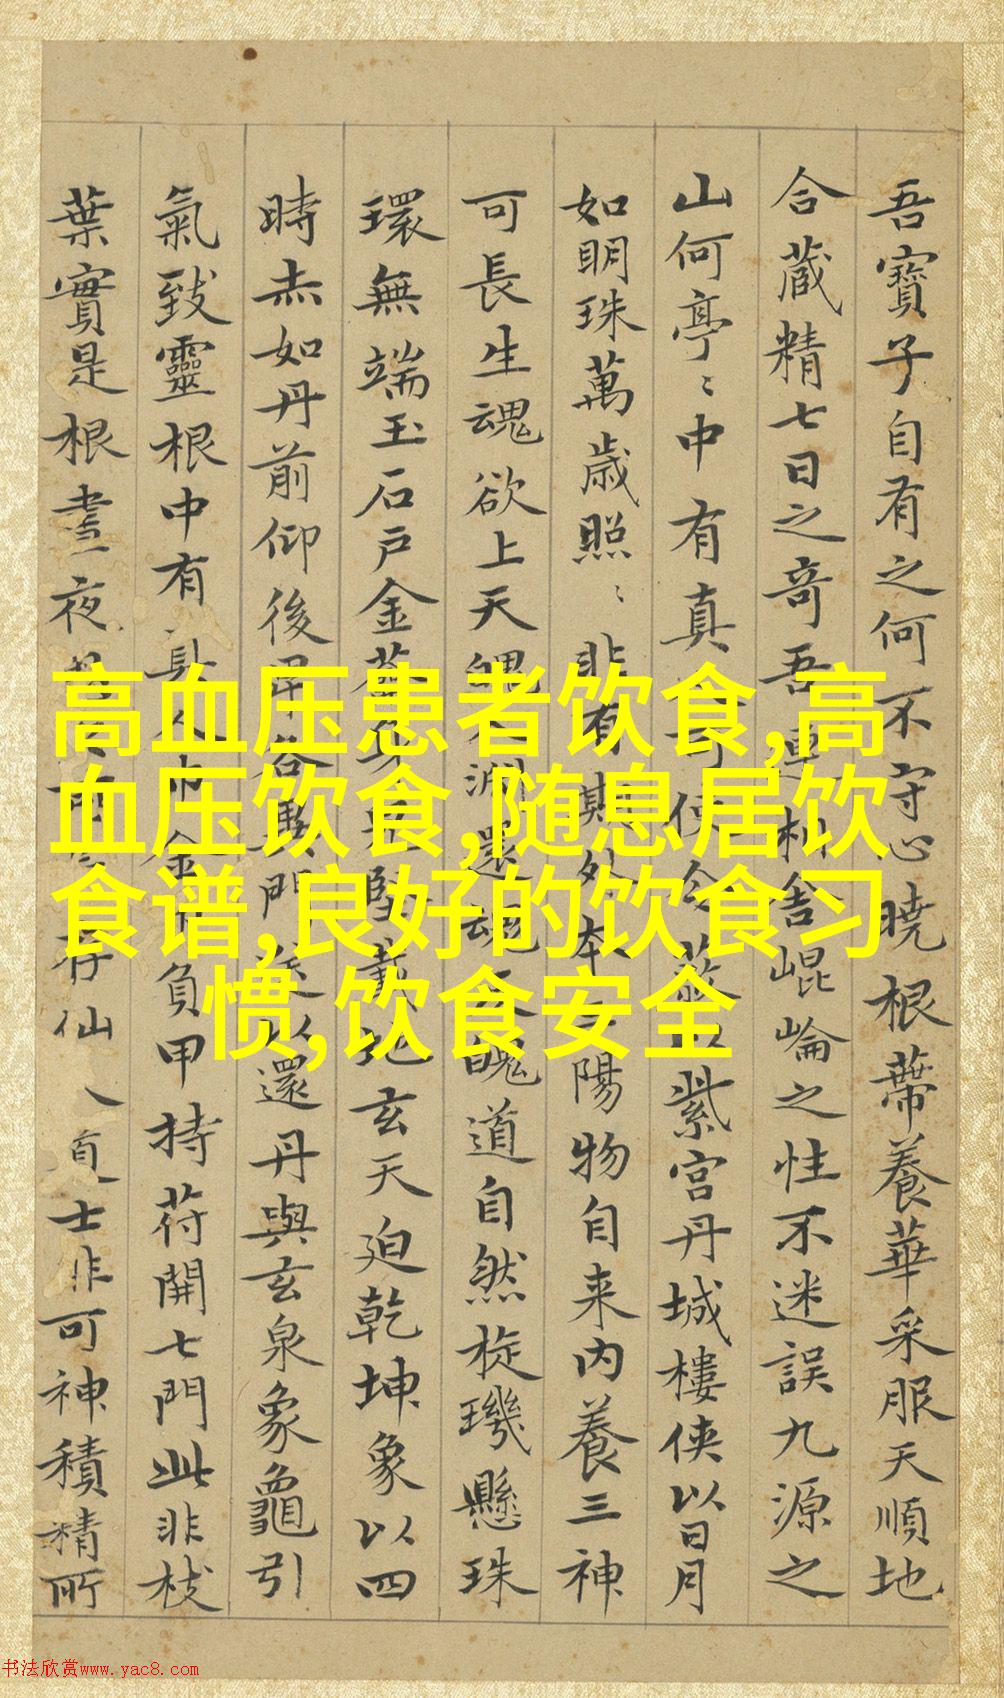 吾寶子自有之何不守心曉根蔕養華采服天順地
合藏精七日之奇吾連相舍崐崘之性不迷誤九源之
山何亭〻中有真可使令蔽以紫宮丹城樓俠以日月
如明珠萬歲照〻非有期外本三陽物自来内養三神
可長生魂欲上天魄入淵還魂反魄道自然旋璣懸珠
環無端玉石戶金籥身兒堅載地玄天迫乾坤象以四
時赤如丹前仰後卑各異門送以還丹與玄泉象龜引
氣致靈根中有真人巾金巾負甲持苻開七門此非枝
葉實是根晝夜思之可長存仙人道士非可神積精所
高血压患者饮食,高
血压饮食,随息居饮
食谱,良好的饮食习
惯,饮食安全
书法欣赏www.yac8.com